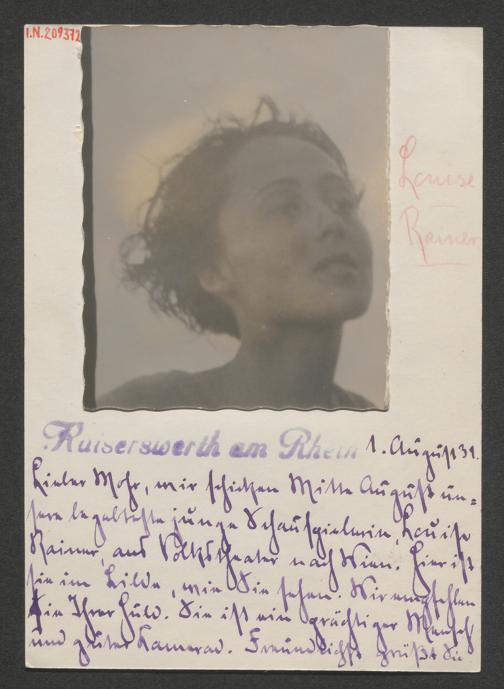 I.N. 209372
Louise
Rainer
Kaiserswerth am Rhein 1. August 31.
Lieber Mohr, wir schicken Mitte August un=
sere begabteste junge Schauspielerin, Louise
Rainer, ans Volkstheater nach Wien. Hier ist
sie im Bilde, wie Sie sehen. Wir empfehlen
sie Ihrer Huld. Sie ist ein prächtiger Mensch
und guter Kamerad. Freundlichst grüßt Sie